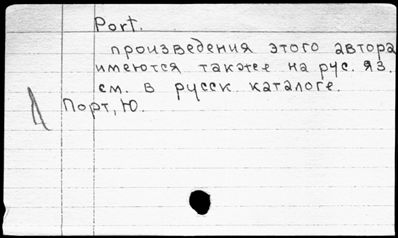 Port.
произведения этого автора
имеются также на рус. яз.
см. в русск. каталоге.
Порт, Ю.